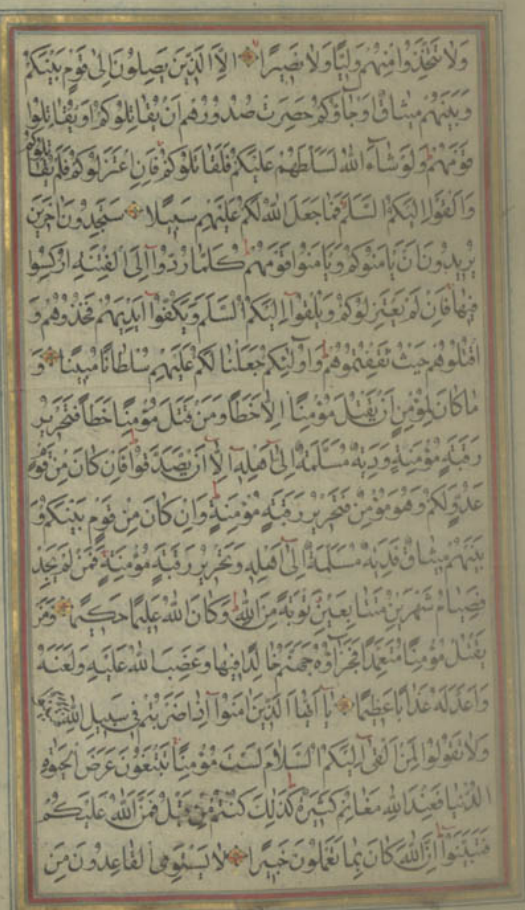 وَلا تَتَّخِذُوا مِنْهُمْ وَلِيًّا وَلا نَصِيرًا اِلاَّ الَّذِينَ يَصِلُونَ اِلىٰ قَوْمٍ بَيْنَكُمْ
وَبَيْنَهُمْ مِيثاقٌ اَوْ جاؤُكُمْ حَصِرَتْ صُدُورُهُمْ اَنْ يُقاتِلُوكُمْ اَوْ يُقاتِلُوا
قَوْمَهُمْ وَلَوْ شاءَ اللهُ لَسَلَّطَهُمْ عَلَيْكُمْ فَلَقاتَلُوكُمْ فَاِنِ اعْتَزَلُوكُمْ فَلَمْ يُقاتِلُوكُمْ
وَاَلْقَوْا اِلَيْكُمُ السَّلَمَ فَما جَعَلَ اللهُ لَكُمْ عَلَيْهِمْ سَبِيلًا سَتَجِدُونَ اٰخَرِينَ
يُرِيدُونَ اَنْ يَأْمَنُوكُمْ وَيَأْمَنُوا قَوْمَهُمْ كُلَّما رُدُّوا اِلَى الْفِتْنَةِ اُرْكِسُوا
فِيها فَاِنْ لَمْ يَعْتَزِلُوكُمْ وَيُلْقُوا اِلَيْكُمُ السَّلَمَ وَيَكُفُّوا اَيْدِيَهُمْ فَخُذُوهُمْ وَ
اقْتُلُوهُمْ حَيْثُ ثَقِفْتُمُوهُمْ وَاُولٰئِكُمْ جَعَلْنا لَكُمْ عَلَيْهِمْ سُلْطانًا مُبِينًا وَ
ما كانَ لِمُؤْمِنٍ اَنْ يَقْتُلَ مُؤْمِنًا اِلاَّ خَطَأً وَمَنْ قَتَلَ مُؤْمِنًا خَطَأً فَتَحْرِيرُ
رَقَبَةٍ مُؤْمِنَةٍ وَدِيَةٌ مُسَلَّمَةٌ اِلىٰ اَهْلِهِ اِلاَّ اَنْ يَصَّدَّقُوا فَاِنْ كانَ مِنْ قَوْمٍ
عَدُوٍّ لَكُمْ وَهُوَ مُؤْمِنٌ فَتَحْرِيرُ رَقَبَةٍ مُؤْمِنَةٍ وَاِنْ كانَ مِنْ قَوْمٍ بَيْنَكُمْ وَ
بَيْنَهُمْ مِيثاقٌ فَدِيَةٌ مُسَلَّمَةٌ اِلىٰ اَهْلِهِ وَتَحْرِيرُ رَقَبَةٍ مُؤْمِنَةٍ فَمَنْ لَمْ يَجِدْ
فَصِيامُ شَهْرَيْنِ مُتَتابِعَيْنِ تَوْبَةً مِنَ اللهِ وَكانَ اللهُ عَلِيمًا حَكِيمًا وَمَنْ
يَقْتُلْ مُؤْمِنًا مُتَعَمِّدًا فَجَزاؤُهُ جَهَنَّمُ خالِدًا فِيها وَغَضِبَ اللهُ عَلَيْهِ وَلَعَنَهُ
وَاَعَدَّ لَهُ عَذابًا عَظِيمًا يا اَيُّهَا الَّذِينَ اٰمَنُوا اِذا ضَرَبْتُمْ فِي سَبِيلِ اللهِ
وَلا تَقُولُوا لِمَنْ اَلْقىٰ اِلَيْكُمُ السَّلامَ لَسْتَ مُؤْمِنًا تَبْتَغُونَ عَرَضَ الْحَيٰوةِ
الدُّنْيا فَعِنْدَ اللهِ مَغانِمُ كَثِيرَةٌ كَذٰلِكَ كُنْتُمْ مِنْ قَبْلُ فَمَنَّ اللهُ عَلَيْكُمْ
فَتَبَيَّنُوا اِنَّ اللهَ كانَ بِما تَعْمَلُونَ خَبِيرًا لا يَسْتَوِي الْقاعِدُونَ مِنَ